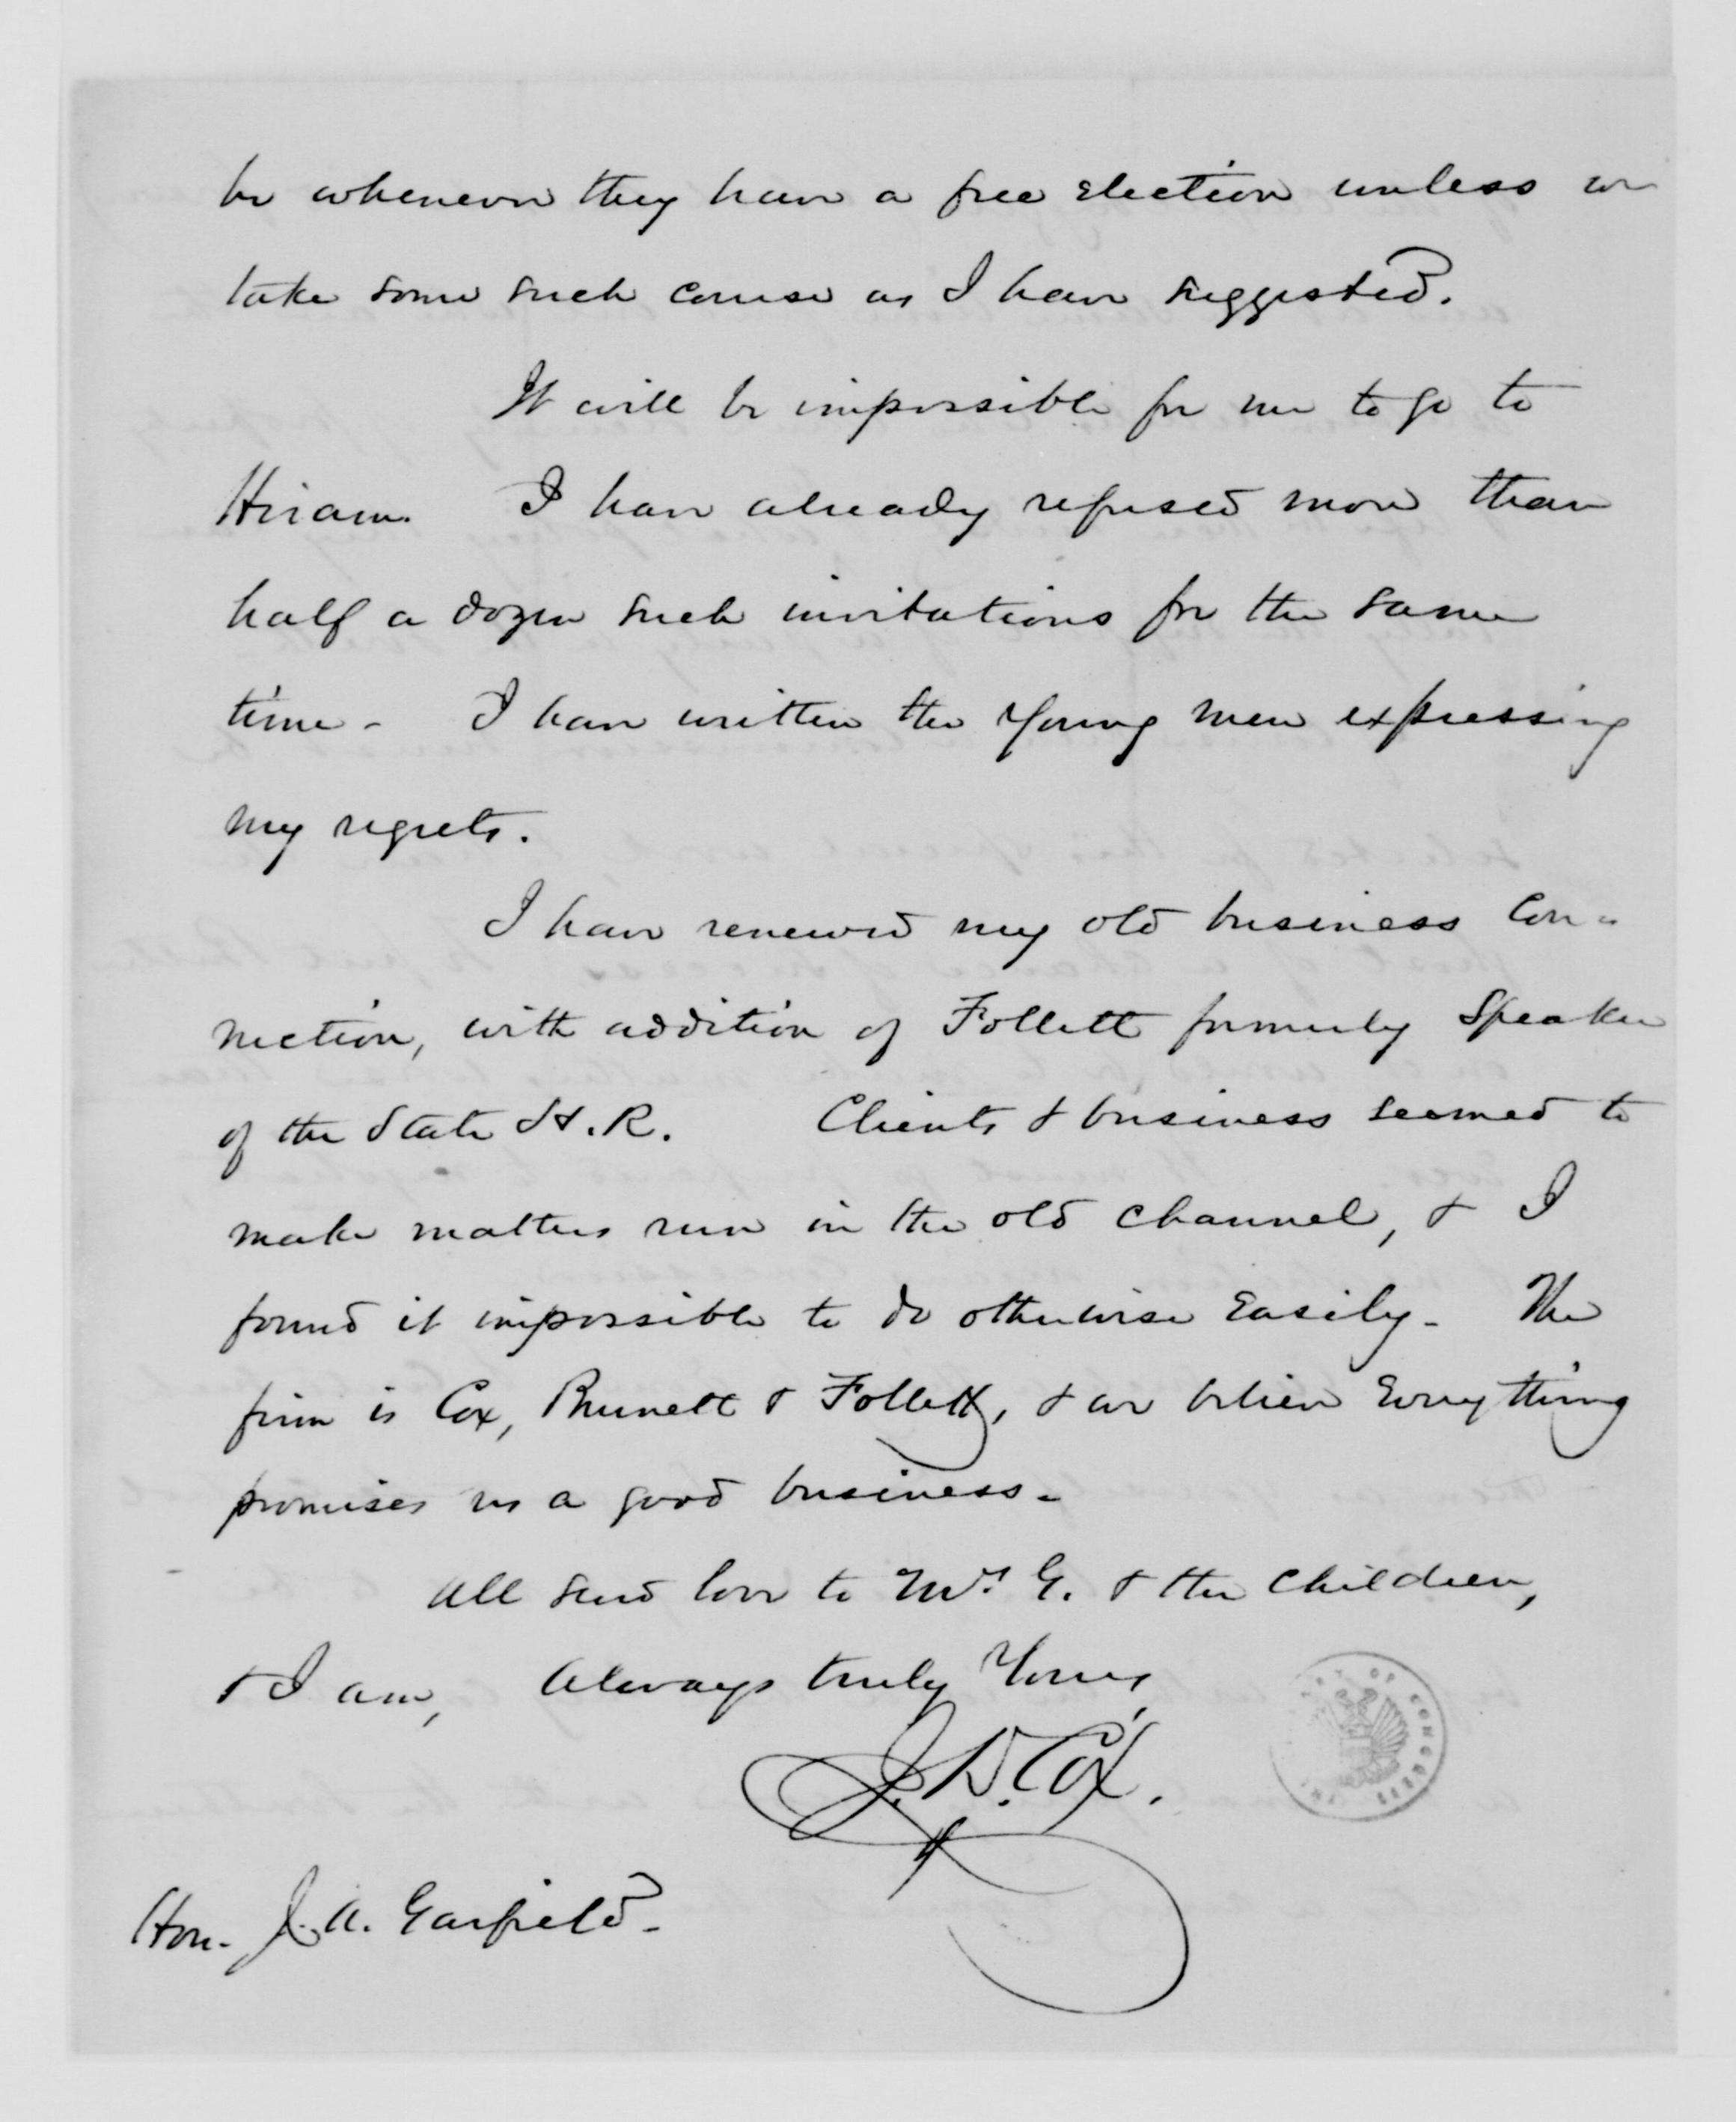 be whenever they have a free election unless we
take some such course as I have suggested.
It will be impossible for me to go to
Hiram. I have already refused more than
half a dozen such invitations for the same
time - I have written the young men expressing
my regrets.
I have renewed my old business con-
nection, with addition of Follett formerly Speaker
of the State H.R. Clients & business seemed to
make matters run in the old channel, & I
found it impossible to do otherwise easily - The
firm is Cox, Burnett & Follett, & we believe everything
promises us a good business -
All send love to Mrs. G. & the children,
& I am, Always truly Yours,
J. D. Cox.
Hon. J. A. Garfield -